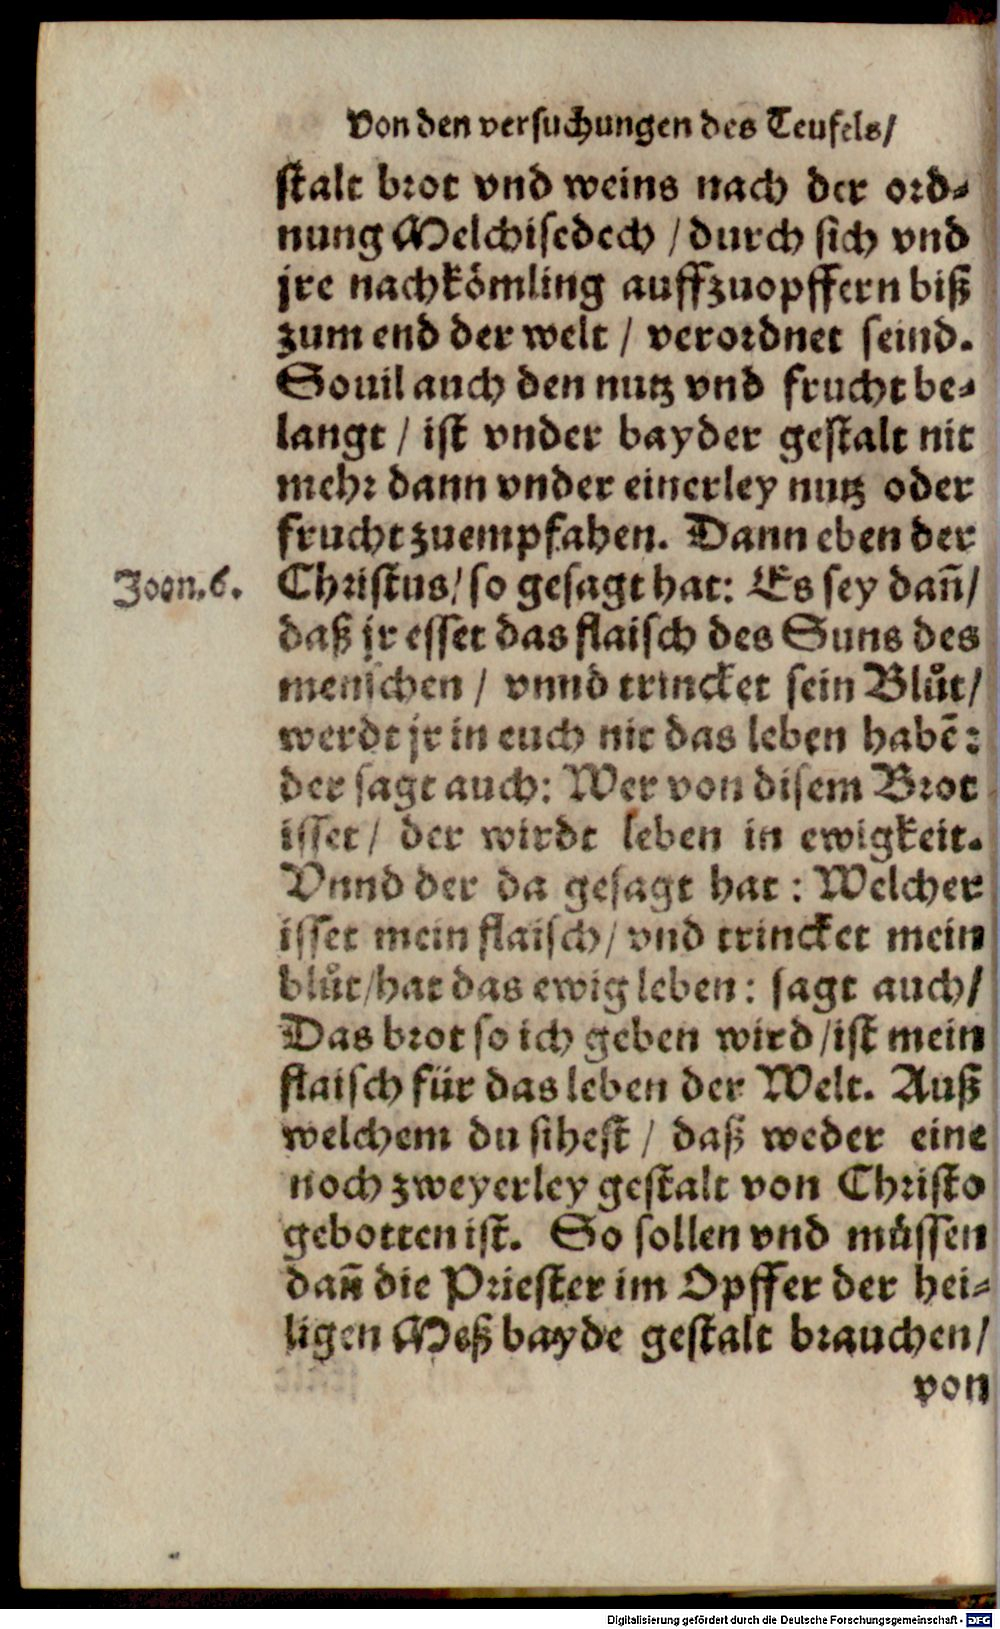 Von den versuchungen des Teufels/
stalt brot vnd weins nach der ord-
nung Melchisedech / durch sich vnd
jre nachkömling auffzuopffern biß
zum end der welt / verordnet seind.
Souil auch den nutz vnd frucht be-
langt / ist vnder bayder gestalt nit
mehr dann vnder einerley nutz oder
frucht zuempfahen. Dann eben der
Joan. 6.
Christus/ so gesagt hat: Es sey dañ/
daß jr esset das flaisch des Suns des
menschen / vnnd trincket sein Blůt/
werdt jr in euch nit das leben habē:
der sagt auch: Wer von disem Brot
isset / der wirdt leben in ewigkeit.
Vnnd der da gesagt hat : Welcher
isset mein flaisch / vnd trincket mein
blůt/hat das ewig leben : sagt auch/
Das brot so ich geben wird /ist mein
flaisch für das leben der Welt. Auß
welchem du sihest / daß weder eine
noch zweyerley gestalt von Christo
gebotten ist. So sollen vnd müssen
dañ die Priester im Opffer der hei-
ligen Meß bayde gestalt brauchen/
von
Digitalisierung gefördert durch die Deutsche Forschungsgemeinschaft - DFG